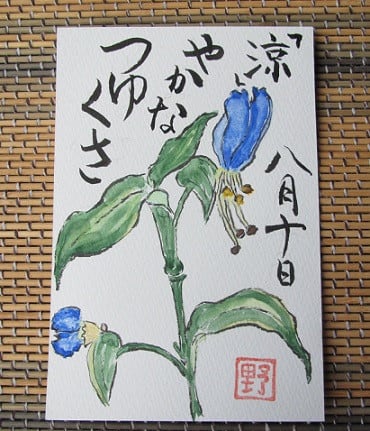 「涼」
やかな
つゆくさ
八月十日
野